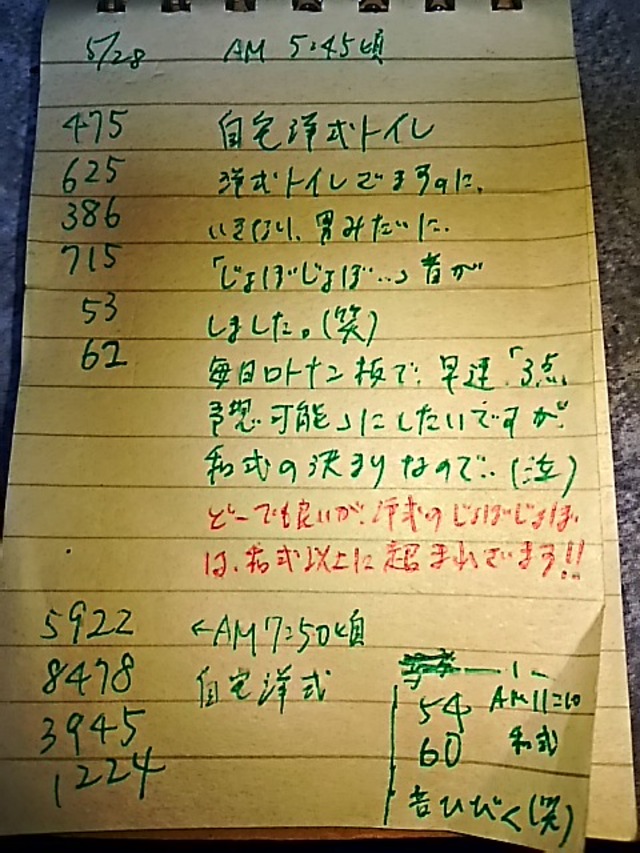 5/28 AM 5:45頃
475 自宅洋式トイレ
625 洋式トイレでますのに、
386 いきなり、男みたいに、
715 「じょぼじょぼ...」音が
53 しました。(笑)
62 毎日ロトナン板で、早速「3点
予想可能」にしたいですが、
和式の決まりなので..(泣)
どーでも良いが、洋式のじょぼじょぼ
は、和式以上に超まれでます!!
5922 ←AM7:50頃
8478 自宅洋式
3945
1224
54 AM11:10
60 和式
音ひびく(笑)